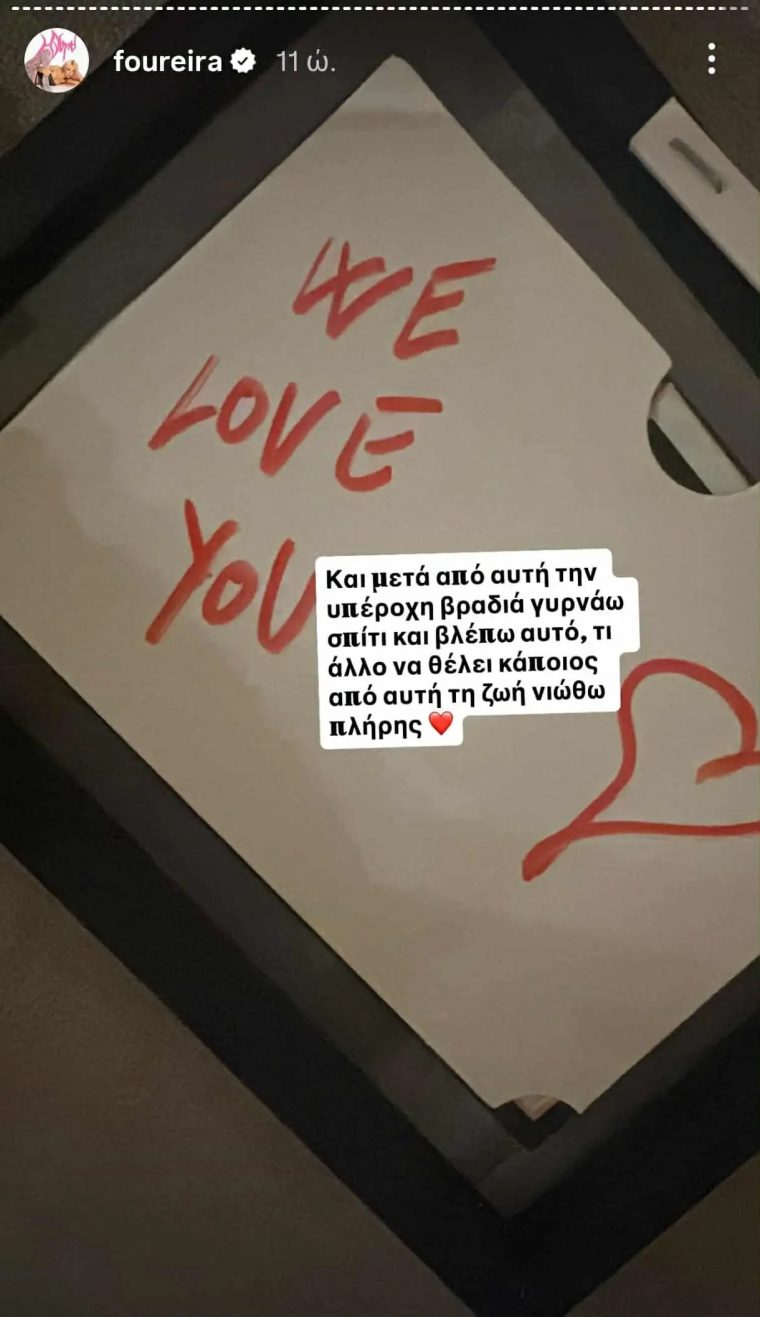 foureira 11 ώ.
WE
LOVE
YOU
Και μετά από αυτή την
υπέροχη βραδιά γυρνάω
σπίτι και βλέπω αυτό, τι
άλλο να θέλει κάποιος
από αυτή τη ζωή νιώθω
πλήρης ❤️